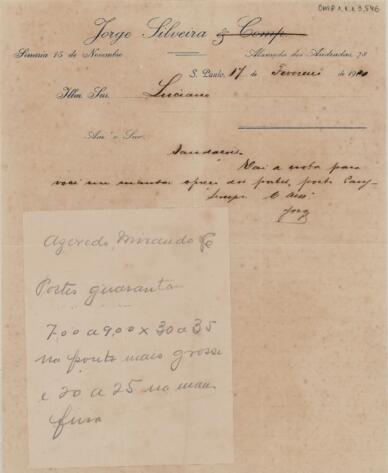 Jorge Silveira & Comp.
Serraria 15 de Novembro
Alameda dos Andradas, 78
S. Paulo, 17 de Fevereiro de 19
Illmo Snr. Luciano
Amº e Snr.
Saudações
Vai a nota para
você me mandar o preço dos postes, posto
Jorge
Azevedo, Miranda & C
Postes guarantan
7.00 a 9.00 x 30 a 35
na ponta mais grossa
e 20 a 25 na mais
fina